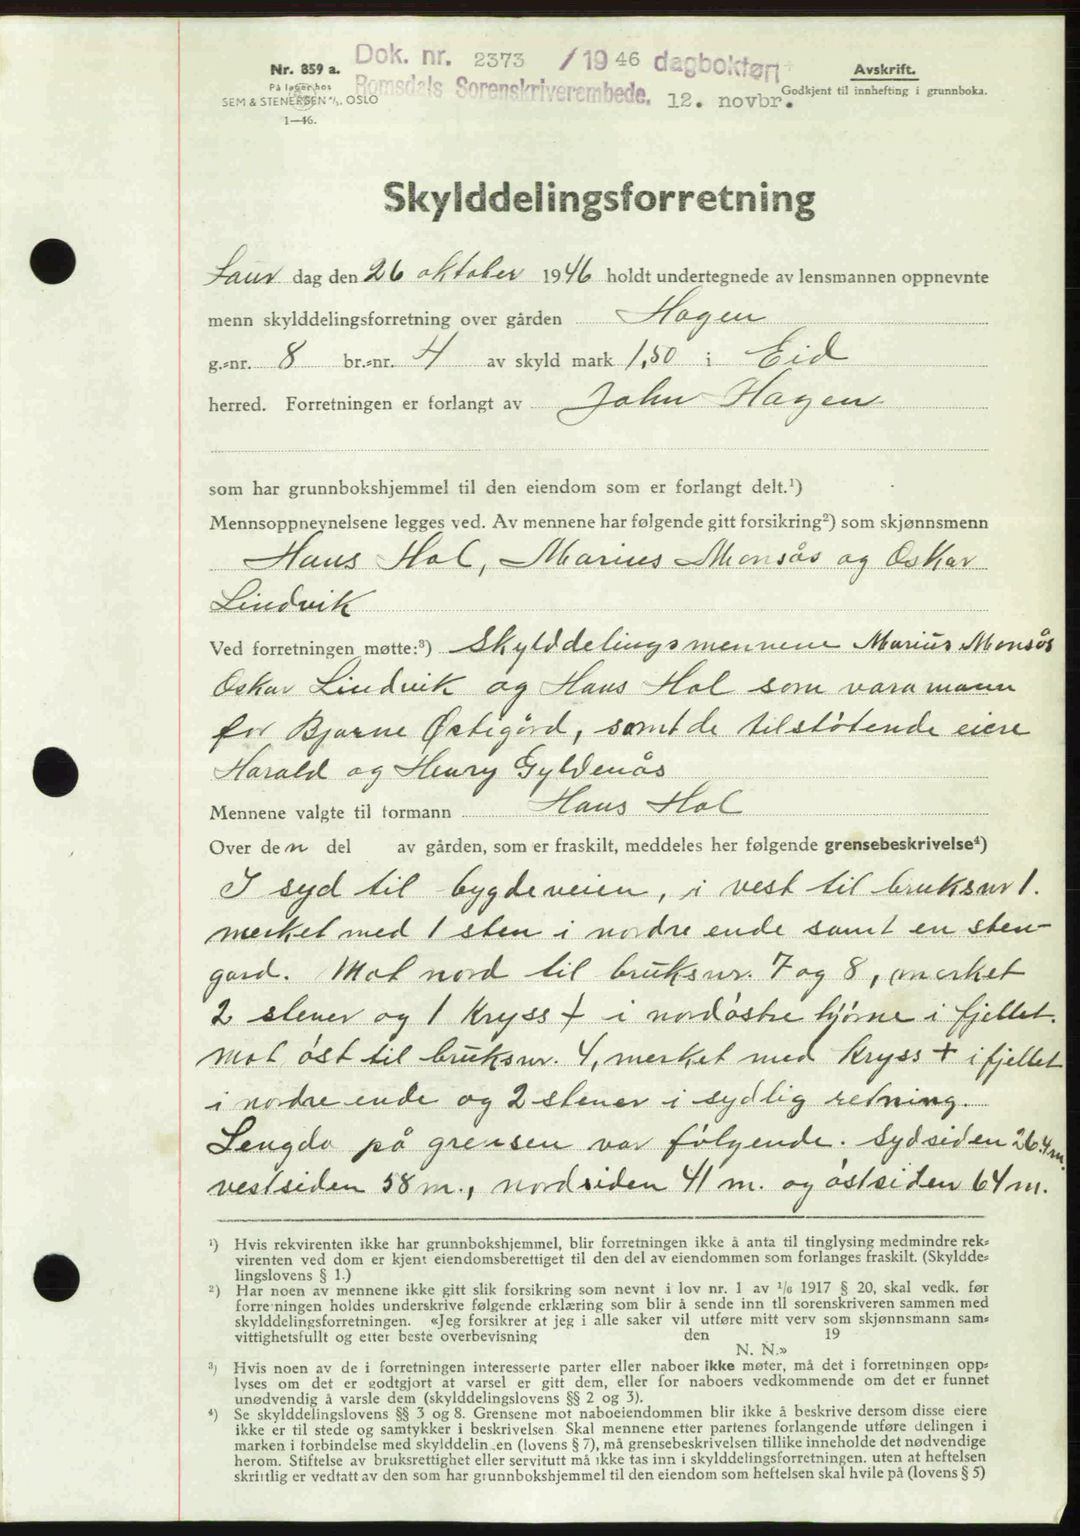 Dok. nr. 2373 /1946 dagbokført
Nr. 859 a.
På lager hos
SEM & STENERSEN A/S. OSLO
1—46.
Romsdals Sorenskriverembede. 12. novbr.
Avskrift.
Godkjent til innhefting i grunnboka.
Skylddelingsforretning
Laur dag den 26 oktober 1946 holdt undertegnede av lensmannen oppnevnte
menn skylddelingsforretning over gården Hagen
g.-nr. 8 br.-nr. 4 av skyld mark 1,50 i Eid
herred. Forretningen er forlangt av John Hagen
som har grunnbokshjemmel til den eiendom som er forlangt delt.¹)
Mennsoppnevnelsene legges ved. Av mennene har følgende gitt forsikring²) som skjønnsmenn
Hans Hol, Marius Monsås og Oskar
Lindvik
Ved forretningen møtte:³) Skylddelingsmennene Marius Monsås
Oskar Lindvik og Hans Hol som varamann
for Bjarne Østigård, samt de tilstøtende eiere
Harald og Henry Gyldenås
Mennene valgte til formann Hans Hol
Over den del av gården, som er fraskilt, meddeles her følgende grensebeskrivelse⁴)
I syd til bygdeveien, i vest til bruksnr 1.
merket med 1 sten i nordre ende samt en sten-
gard. Mot nord til bruksnr. 7 og 8, merket
2 stener og 1 Kryss + i nordøstre hjørne i fjellet.
Mot øst til bruksnr. 4, merket med Kryss + i fjellet
i nordre ende og 2 stener i sydlig retning.
Lengda på grensen var følgende. Sydsiden 26.4 m.
vestsiden 58 m., nordsiden 41 m. og østsiden 64 m.
¹) Hvis rekvirenten ikke har grunnbokshjemmel, blir forretningen ikke å anta til tinglysing medmindre rek-
virenten ved dom er kjent eiendomsberettiget til den del av eiendommen som forlanges fraskilt. (Skyldde-
lingslovens § 1.)
²) Har noen av mennene ikke gitt slik forsikring som nevnt i lov nr. 1 av 1/6 1917 § 20, skal vedk. før
forretningen holdes underskrive følgende erklæring som blir å sende inn til sorenskriveren sammen med
skylddelingsforretningen. «Jeg forsikrer at jeg i alle saker vil utføre mitt verv som skjønnsmann sam-
vittighetsfullt og etter beste overbevisning den 19
N. N.»
³) Hvis noen av de i forretningen interesserte parter eller naboer ikke møter, må det i forretningen opp-
lyses om det er godtgjort at varsel er gitt dem, eller for naboers vedkommende om det er funnet
unødvendig å varsle dem (skylddelingslovens §§ 2 og 3).
⁴) Se skylddelingslovens §§ 3 og 8. Grensene mot naboeiendommen blir ikke å beskrive dersom disse eiere
ikke er til stede og samtykker i beskrivelsen. Skal mennene etter partenes forlangende utføre delingen i
marken i forbindelse med skylddelingen (lovens § 7), må grensebeskrivelsen tillike inneholde det nødvendige
herom. Stiftelse av bruksrettighet eller servitutt må ikke tas inn i skylddelingsforretningen, uten at heftelsen
skriftlig er vedtatt av den som har grunnbokshjemmel til den eiendom som heftelsen skal hvile på (lovens § 5)